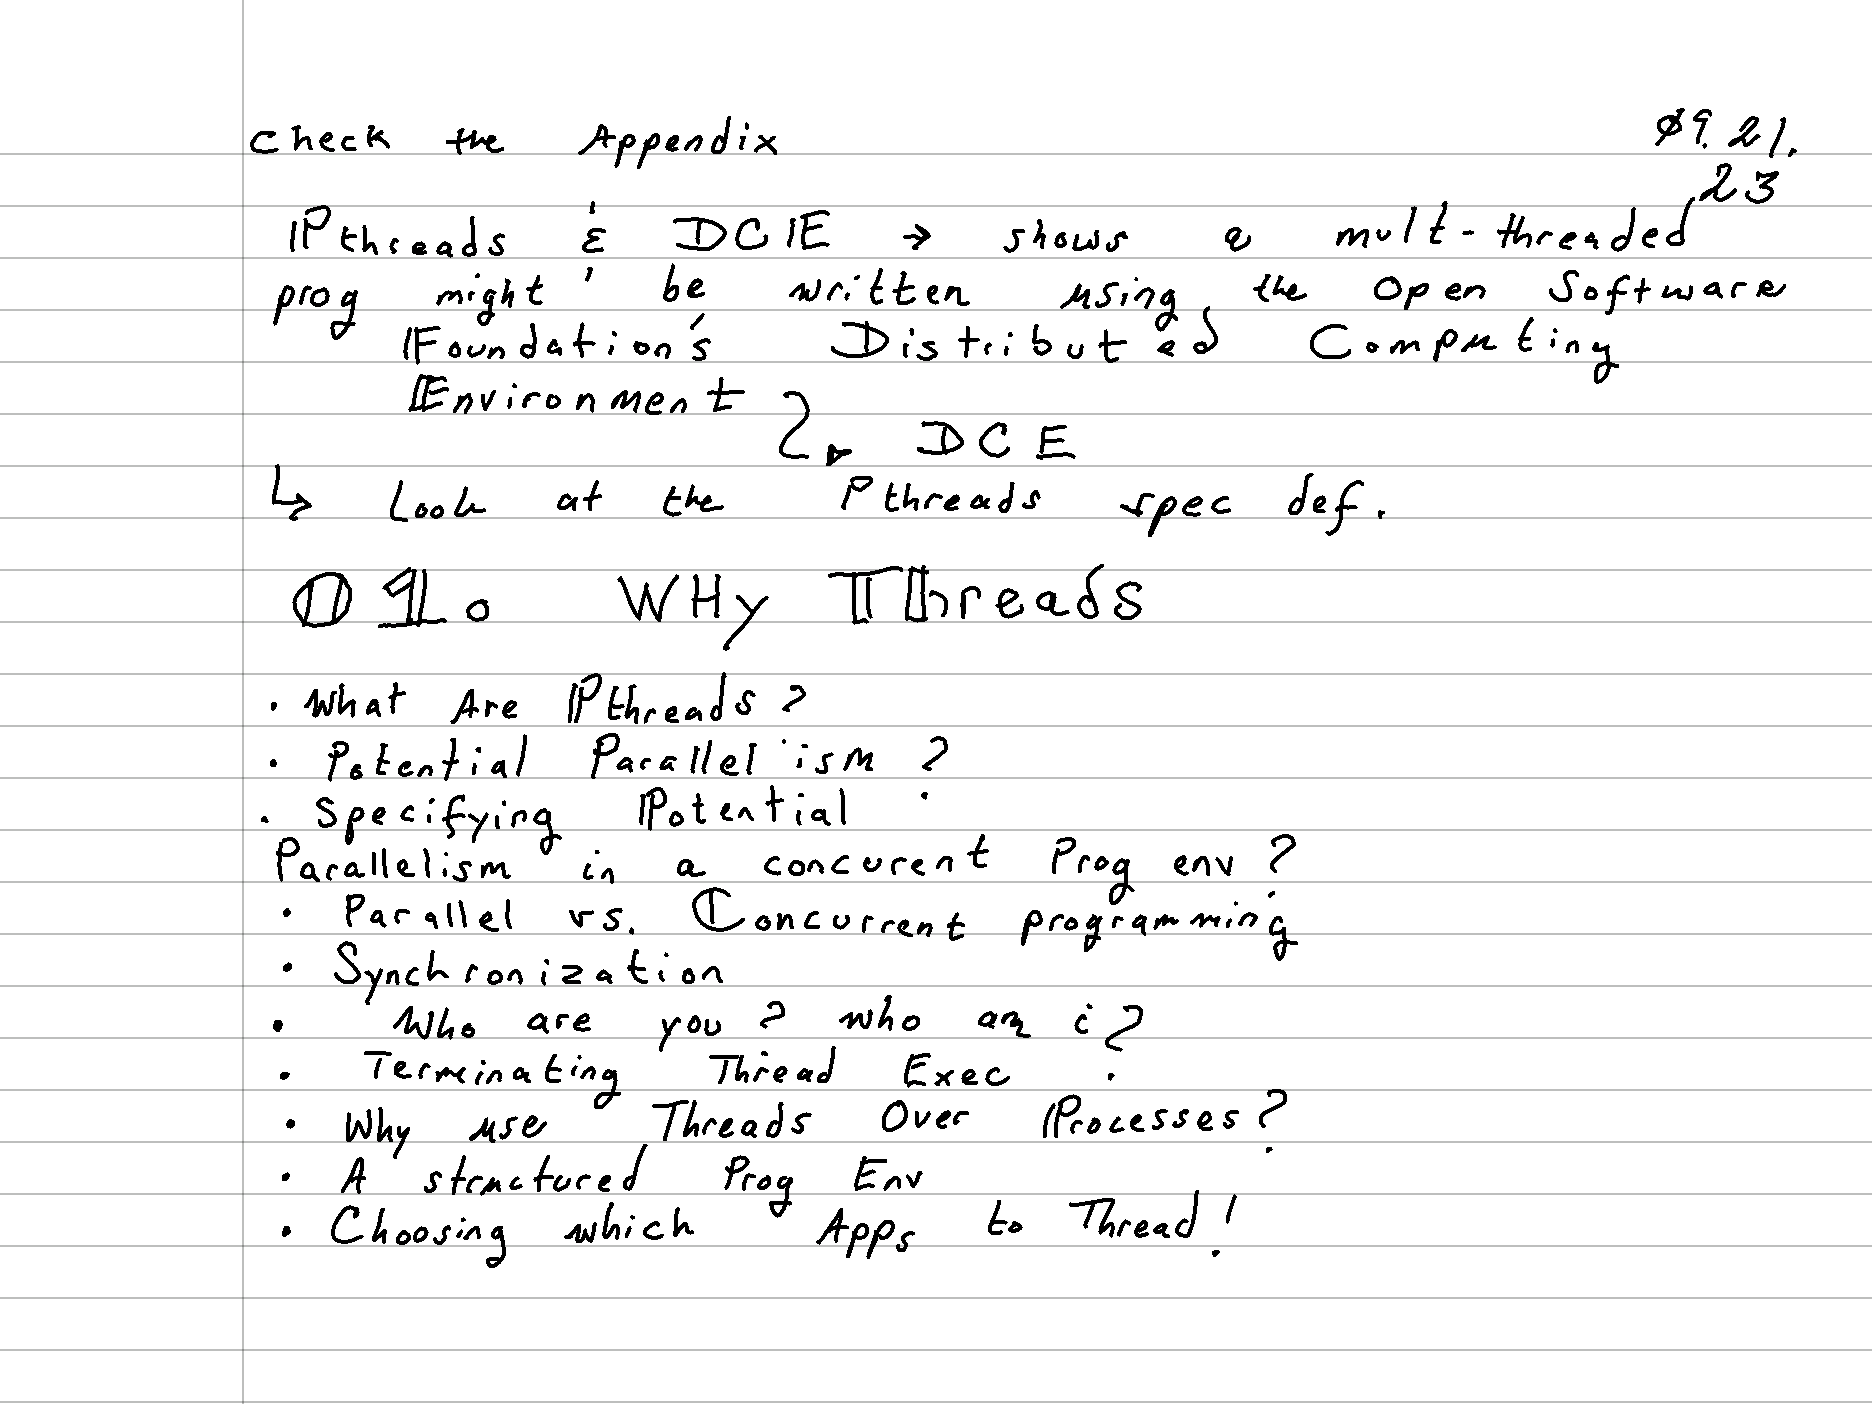 check the Appendix
09.21.
23
Pthreads & DCE → shows a mult-threaded
prog might be written using the Open Software
Foundation's Distributed Computing
Environment
→ DCE
↳ Look at the Pthreads spec def.
01. WHy Threads
· What Are Pthreads?
· Potential Parallelism?
· Specifying Potential
Parallelism in a concurent Prog env?
· Parallel vs. Concurrent programming
· Synchronization
· Who are you? who am i?
· Terminating Thread Exec
· Why use Threads Over Processes?
· A structured Prog Env
· Choosing which Apps to Thread!